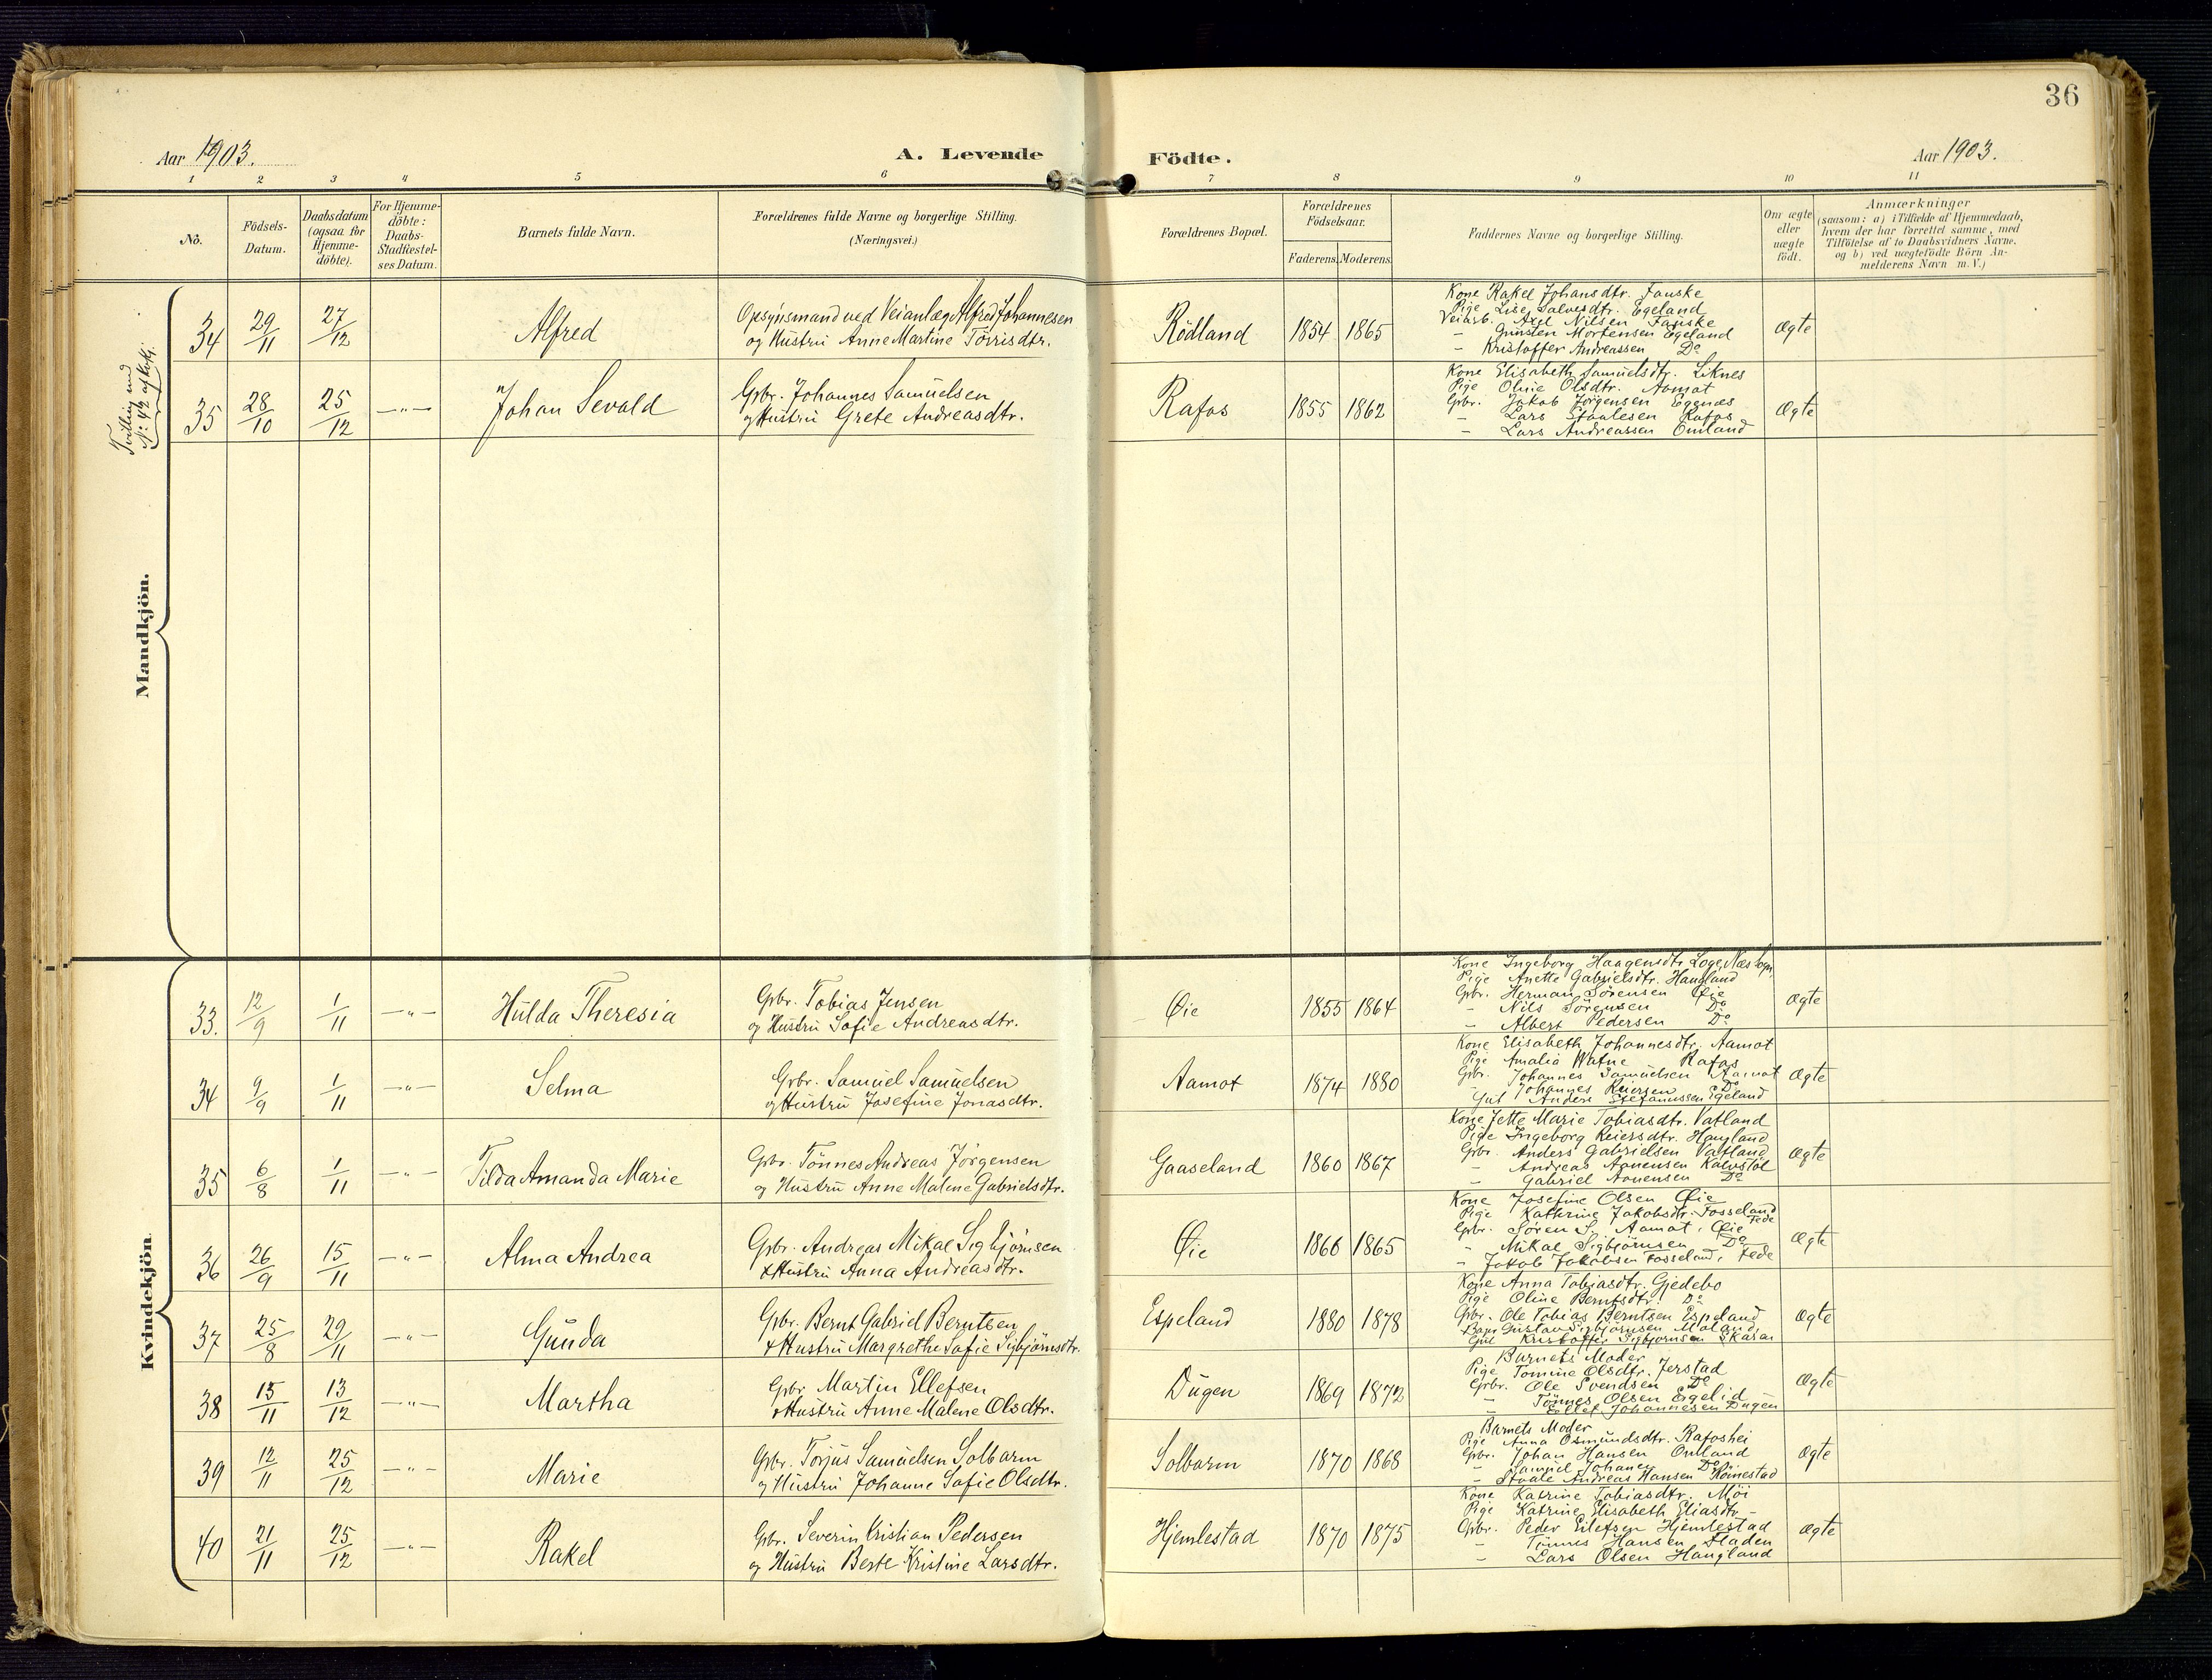 36
Aar 1903.
A. Levende
Födte.
Aar 1903.
1 2 3 4 5 6 7 8 9 10 11
No.
Födsels-
Datum.
Daabsdatum
(ogsaa for
Hjemme-
döbte).
For Hjemme-
döbte:
Daabs-
Stadfæstel-
ses Datum.
Barnets fulde Navn.
Forældrenes fulde Navne og borgerlige Stilling.
(Næringsvei.)
Forældrenes Bopæl.
Forældrenes
Födselsaar.
Faderens. Moderens.
Faddernes Navne og borgerlige Stilling.
Om ægte
eller
uægte
födt.
Anmærkninger
(saasom: a) i Tilfælde af Hjemmedaab,
hvem der har forrettet samme, med
Tilföielse af to Daabsvidners Navne.
og b) ved uægtefödte Börn An-
melderens Navn m. V.)
Mandkjön.
34 29/11 27/12 Alfred
Opsynsmand ved Veianlæg Alfred Johannesen
og Hustru Anne Martine Törrisdtr.
Rödland 1854 1865
Kone Rakel Johansdtr. Fauske
Pige Lise Salvesdtr. Egeland
Veiarb. Axel Nilsen Fauske
- Gunsten Mortensen Egeland
- Kristoffer Andreassen Do
Ægte
Tvilling med
35 28/10 25/12 —"— Johan Sevald
Gbr. Johannes Samuelsen
og Hustru Grete Andreasdtr.
Rafos 1855 1862
Kone Elisabeth Samuelsdtr. Liknes
Pige Oline Olsdtr. Aamot
Gbr. Jakob Jörgensen Egenæs
- Lars Staalesen Rafos
- Lars Andreassen Omland
Ægte
Kvindekjön.
33. 12/9 1/11 —"— Hulda Theresia
Gbr. Tobias Jensen
og Hustru Sofie Andreasdtr.
Øie 1855 1864
Kone Ingeborg Haagensdtr. Loge, Næs Sogn
Pige Anette Gabrielsdtr. Haugland
Gbr. Herman Sörensen Øie
- Nils Sörensen Do
- Albert Pedersen Do
Ægte
34 9/9 1/11 —"— Selma
Gbr. Samuel Samuelsen
og Hustru Josefine Jonasdtr.
Aamot 1874 1880
Kone Elisabeth Johannesdtr. Aamot
Pige Amalia Watne Rafos
Gbr. Johannes Samuelsen Aamot
- Johannes Reiersen Do
Gut Anders Stefanussen Egeland
Ægte
35 6/8 1/11 —"— Tilda Amanda Marie
Gbr. Tönnes Andreas Jörgensen
og Hustru Anne Malene Gabrielsdtr.
Gaaseland 1860 1867
Kone Jette Marie Tobiasdtr. Vatland
Pige Ingeborg Reiersdtr. Haugland
Gbr. Anders Gabrielsen Vatland
- Andreas Aanensen Kalvstöl
- Gabriel Aanensen Do
Ægte
36 26/9 15/11 —"— Alma Andrea
Gbr. Andreas Mikal Sigbjörnsen
& Hustru Anna Andreasdtr.
Øie 1866 1865
Kone Josefine Olsen Øie
Pige Kathrine Jakobsdtr. Fosseland Fede
Gbr. Sören S. Aamot, Øie
- Mikal Sigbjörnsen Do
- Jakob Jakobsen Fosseland, Fede
Ægte
37 25/8 29/11 —"— Gunda
Gbr. Bernt Gabriel Berntsen
& Hustru Margrethe Sofie Sigbjörnsdtr.
Espeland 1880 1878
Kone Anna Tobiasdtr. Gjedebo
Pige Oline Berntsdtr. Do
Gbr. Ole Tobias Berntsen Espeland
Gustav Sigbjörnsen Moland
Gut Kristoffer Sigbjörnsen
Ægte
38 15/11 13/12 —"— Martha
Gbr. Martin Ellefsen
& Hustru Anne Malene Olsdtr.
Dugen 1869 1872
Barnets Moder
Pige Tomine Olsdtr. Jerstad
Gbr. Ole Svendsen Do
- Tönnes Olsen Eigelid
- Ellef Johannesen Dugen
Ægte
39 12/11 25/12 —"— Marie
Gbr. Torjus Samuelsen Solbarm
og Hustru Johanne Sofie Olsdtr.
Solbarm 1870 1868
Barnets Moder
Pige Anna Osmundsdtr. Rafoshei
Gbr. Johan Hansen Omland
- Samuel Johansen Do
- Staale Andreas Hansen
Ægte
40 21/11 25/12 —"— Rakel
Gbr. Severin Kristian Pedersen
og Hustru Berte Kristine Larsdtr.
Hjemlestad 1870 1875
Kone Katrine Tobiasdtr. Möi
Pige Katrine Elisabeth Eliasdtr. -
Gbr. Peder Eilefsen Hjemlestad
- Tönnes Hansen Fladen
- Lars Olsen Haugland
Ægte